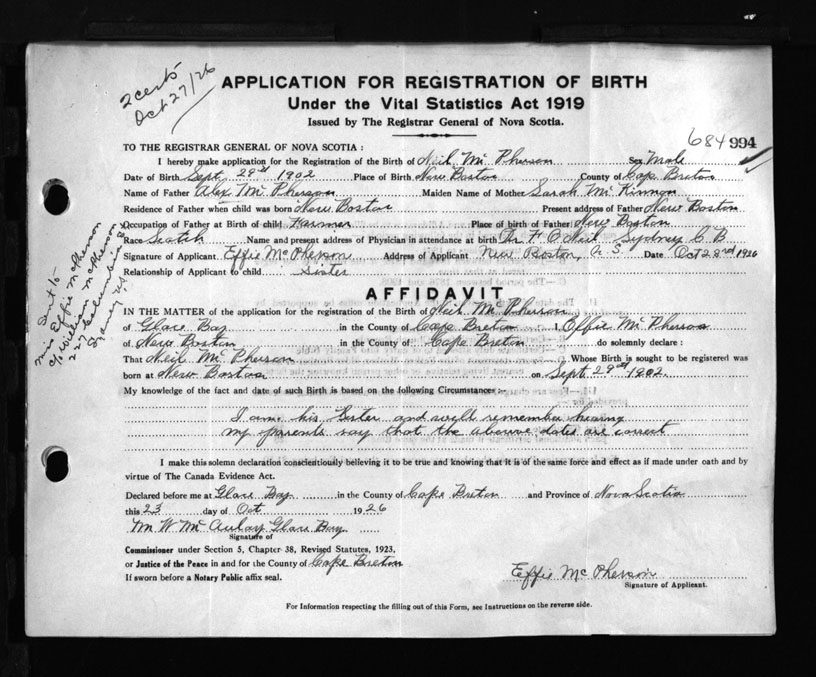 2 certs
Oct 27/26
APPLICATION FOR REGISTRATION OF BIRTH
Under the Vital Statistics Act 1919
Issued by The Registrar General of Nova Scotia.
684 994
TO THE REGISTRAR GENERAL OF NOVA SCOTIA:
I hereby make application for the Registration of the Birth of Neil McPherson Sex Male
Date of Birth Sept. 29th 1902 Place of Birth New Boston County of Cape Breton
Name of Father Alex McPherson Maiden Name of Mother Sarah McKinnon
Residence of Father when child was born New Boston Present address of Father New Boston
Occupation of Father at Birth of child Farmer Place of birth of Father New Boston
Race Scotch Name and present address of Physician in attendance at birth Dr F O'Neil Sydney C B
Signature of Applicant Effie McPherson Address of Applicant New Boston, C. B. Date Oct 23rd 1926
Relationship of Applicant to child Sister
Sent to
Miss Effie McPherson
c/o William McPherson
227 Columbia St
Sydney N.S.
AFFIDAVIT
IN THE MATTER of the application of the registration of the Birth of Neil McPherson
of Glace Bay in the County of Cape Breton I, Effie McPherson
of New Boston in the County of Cape Breton do solemnly declare:
That Neil McPherson Whose Birth is sought to be registered was
born at New Boston on Sept 29th 1902.
My knowledge of the fact and date of such Birth is based on the following Circumstances:-
I am his Sister and well remember hearing
my parents say that the abouve dates are correct
I make this solemn declaration conscientiously believing it to be true and knowing that it is of the same force and effect as if made under oath and by
virtue of The Canada Evidence Act.
Declared before me at Glace Bay in the County of Cape Breton and Province of Nova Scotia
this 23 day of Oct 1926
M W McAulay Glace Bay
Signature of
Commissioner under Section 5, Chapter 38, Revised Statutes, 1923,
or Justice of the Peace in and for the County of Cape Breton
If sworn before a Notary Public affix seal.
Effie McPherson
Signature of Applicant.
For Information respecting the filling out of this Form, see Instructions on the reverse side.